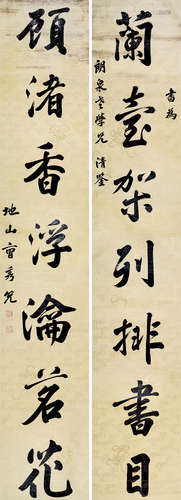 蘭臺架列排書目
書為
朗泉老學兄清鉴
顧渚香浮瀹茗花
地山曾秀先